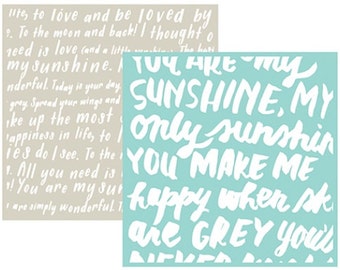 life, to love and be loved by
To the moon and back! I thought o
need is love (and a little sunshine. The best
my sunshine.
nderful. Today is your day.
grey. Spread your wings and
ke up the most
appiness in life, to l
es do I see. To the
. All you need is
! You are my suns
are simply wonderful. T
YOU ARE my
SUNSHINE, MY
only sunshin
YOU MAKE ME
happy when sk
are GREY you'll
NEVER